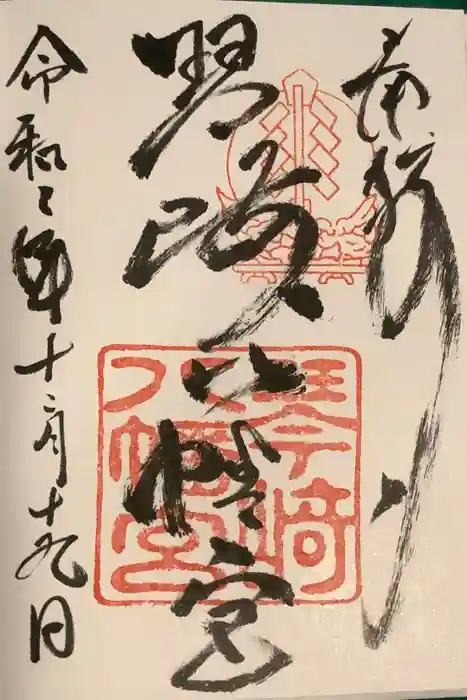 奉拝
琴崎八幡宮
令和二年十二月十九日
琴崎
八幡宮